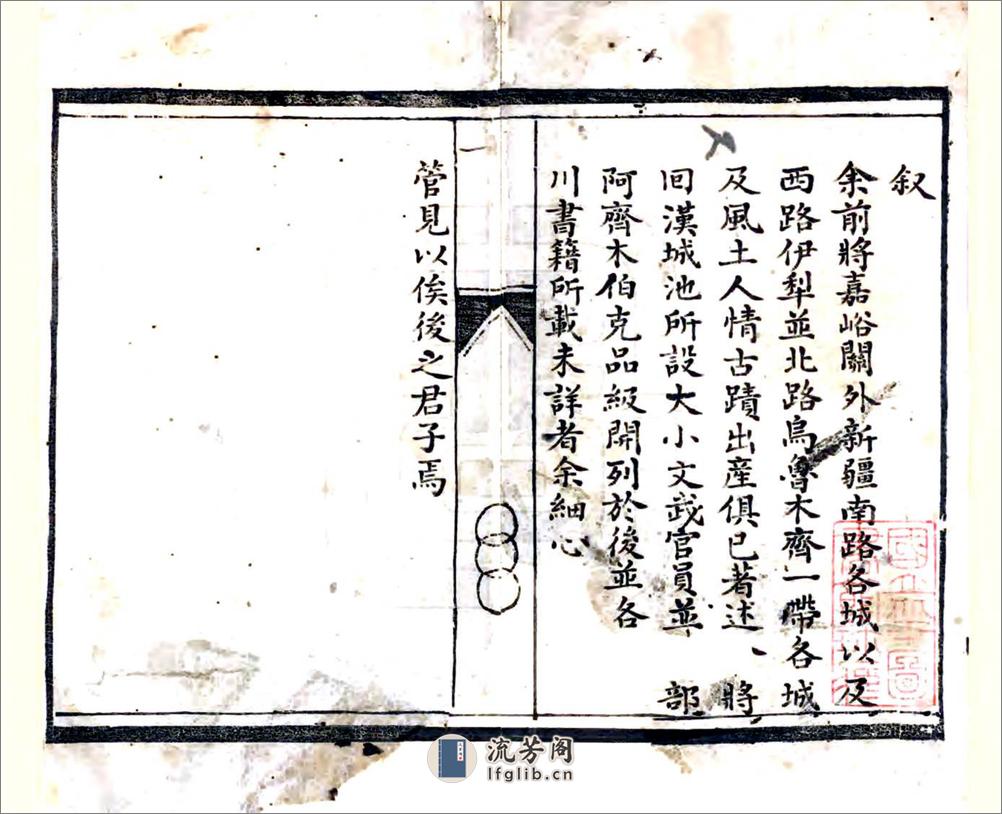 叙
余前將嘉峪關外新疆南路各城以及
西路伊犁並北路烏魯木齊一帶各城
及風土人情古蹟出產俱已著述、將
回漢城池所設大小文武官員並 部
阿齊木伯克品級開列於後並各
川書籍所載未詳者余細心
管見以俟後之君子焉
一
流芳阁
lfglib.cn